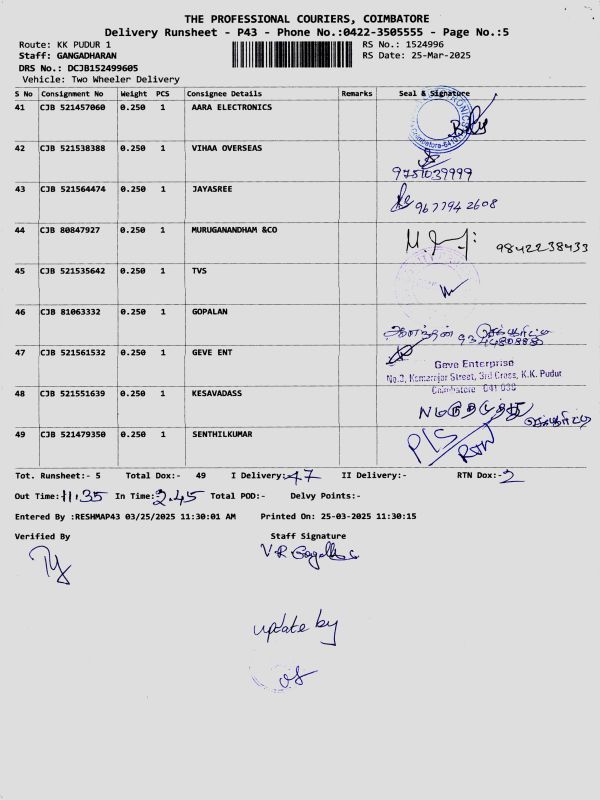 THE PROFESSIONAL COURIERS, COIMBATORE
Delivery Runsheet - P43 - Phone No.:0422-3505555 - Page No.:5
Route: KK PUDUR 1
RS No.: 1524996
Staff: GANGADHARAN
RS Date: 25-Mar-2025
DRS No.: DCJB152499605
Vehicle: Two Wheeler Delivery
S No Consignment No Weight PCS Consignee Details Remarks Seal & Signature
41 CJB 521457060 0.250 1 AARA ELECTRONICS
42 CJB 521538388 0.250 1 VIHAA OVERSEAS
9751039999
43 CJB 521564474 0.250 1 JAYASREE
9677942608
44 CJB 80847927 0.250 1 MURUGANANDHAM &CO
9842238433
45 CJB 521535642 0.250 1 TVS
46 CJB 81063332 0.250 1 GOPALAN
47 CJB 521561532 0.250 1 GEVE ENT
Geve Enterprise
No.3, Kamarajar Street, 3rd Cross, K.K. Pudur
Coimbatore 641 038
48 CJB 521551639 0.250 1 KESAVADASS
49 CJB 521479350 0.250 1 SENTHILKUMAR
P/S
RTN
Tot. Runsheet:- 5 Total Dox:- 49 I Delivery:-47 II Delivery:- RTN Dox:-2
Out Time:11.35 In Time:2.45 Total POD:- Delvy Points:-
Entered By :RESHMAP43 03/25/2025 11:30:01 AM Printed On: 25-03-2025 11:30:15
Verified By
Staff Signature
update by